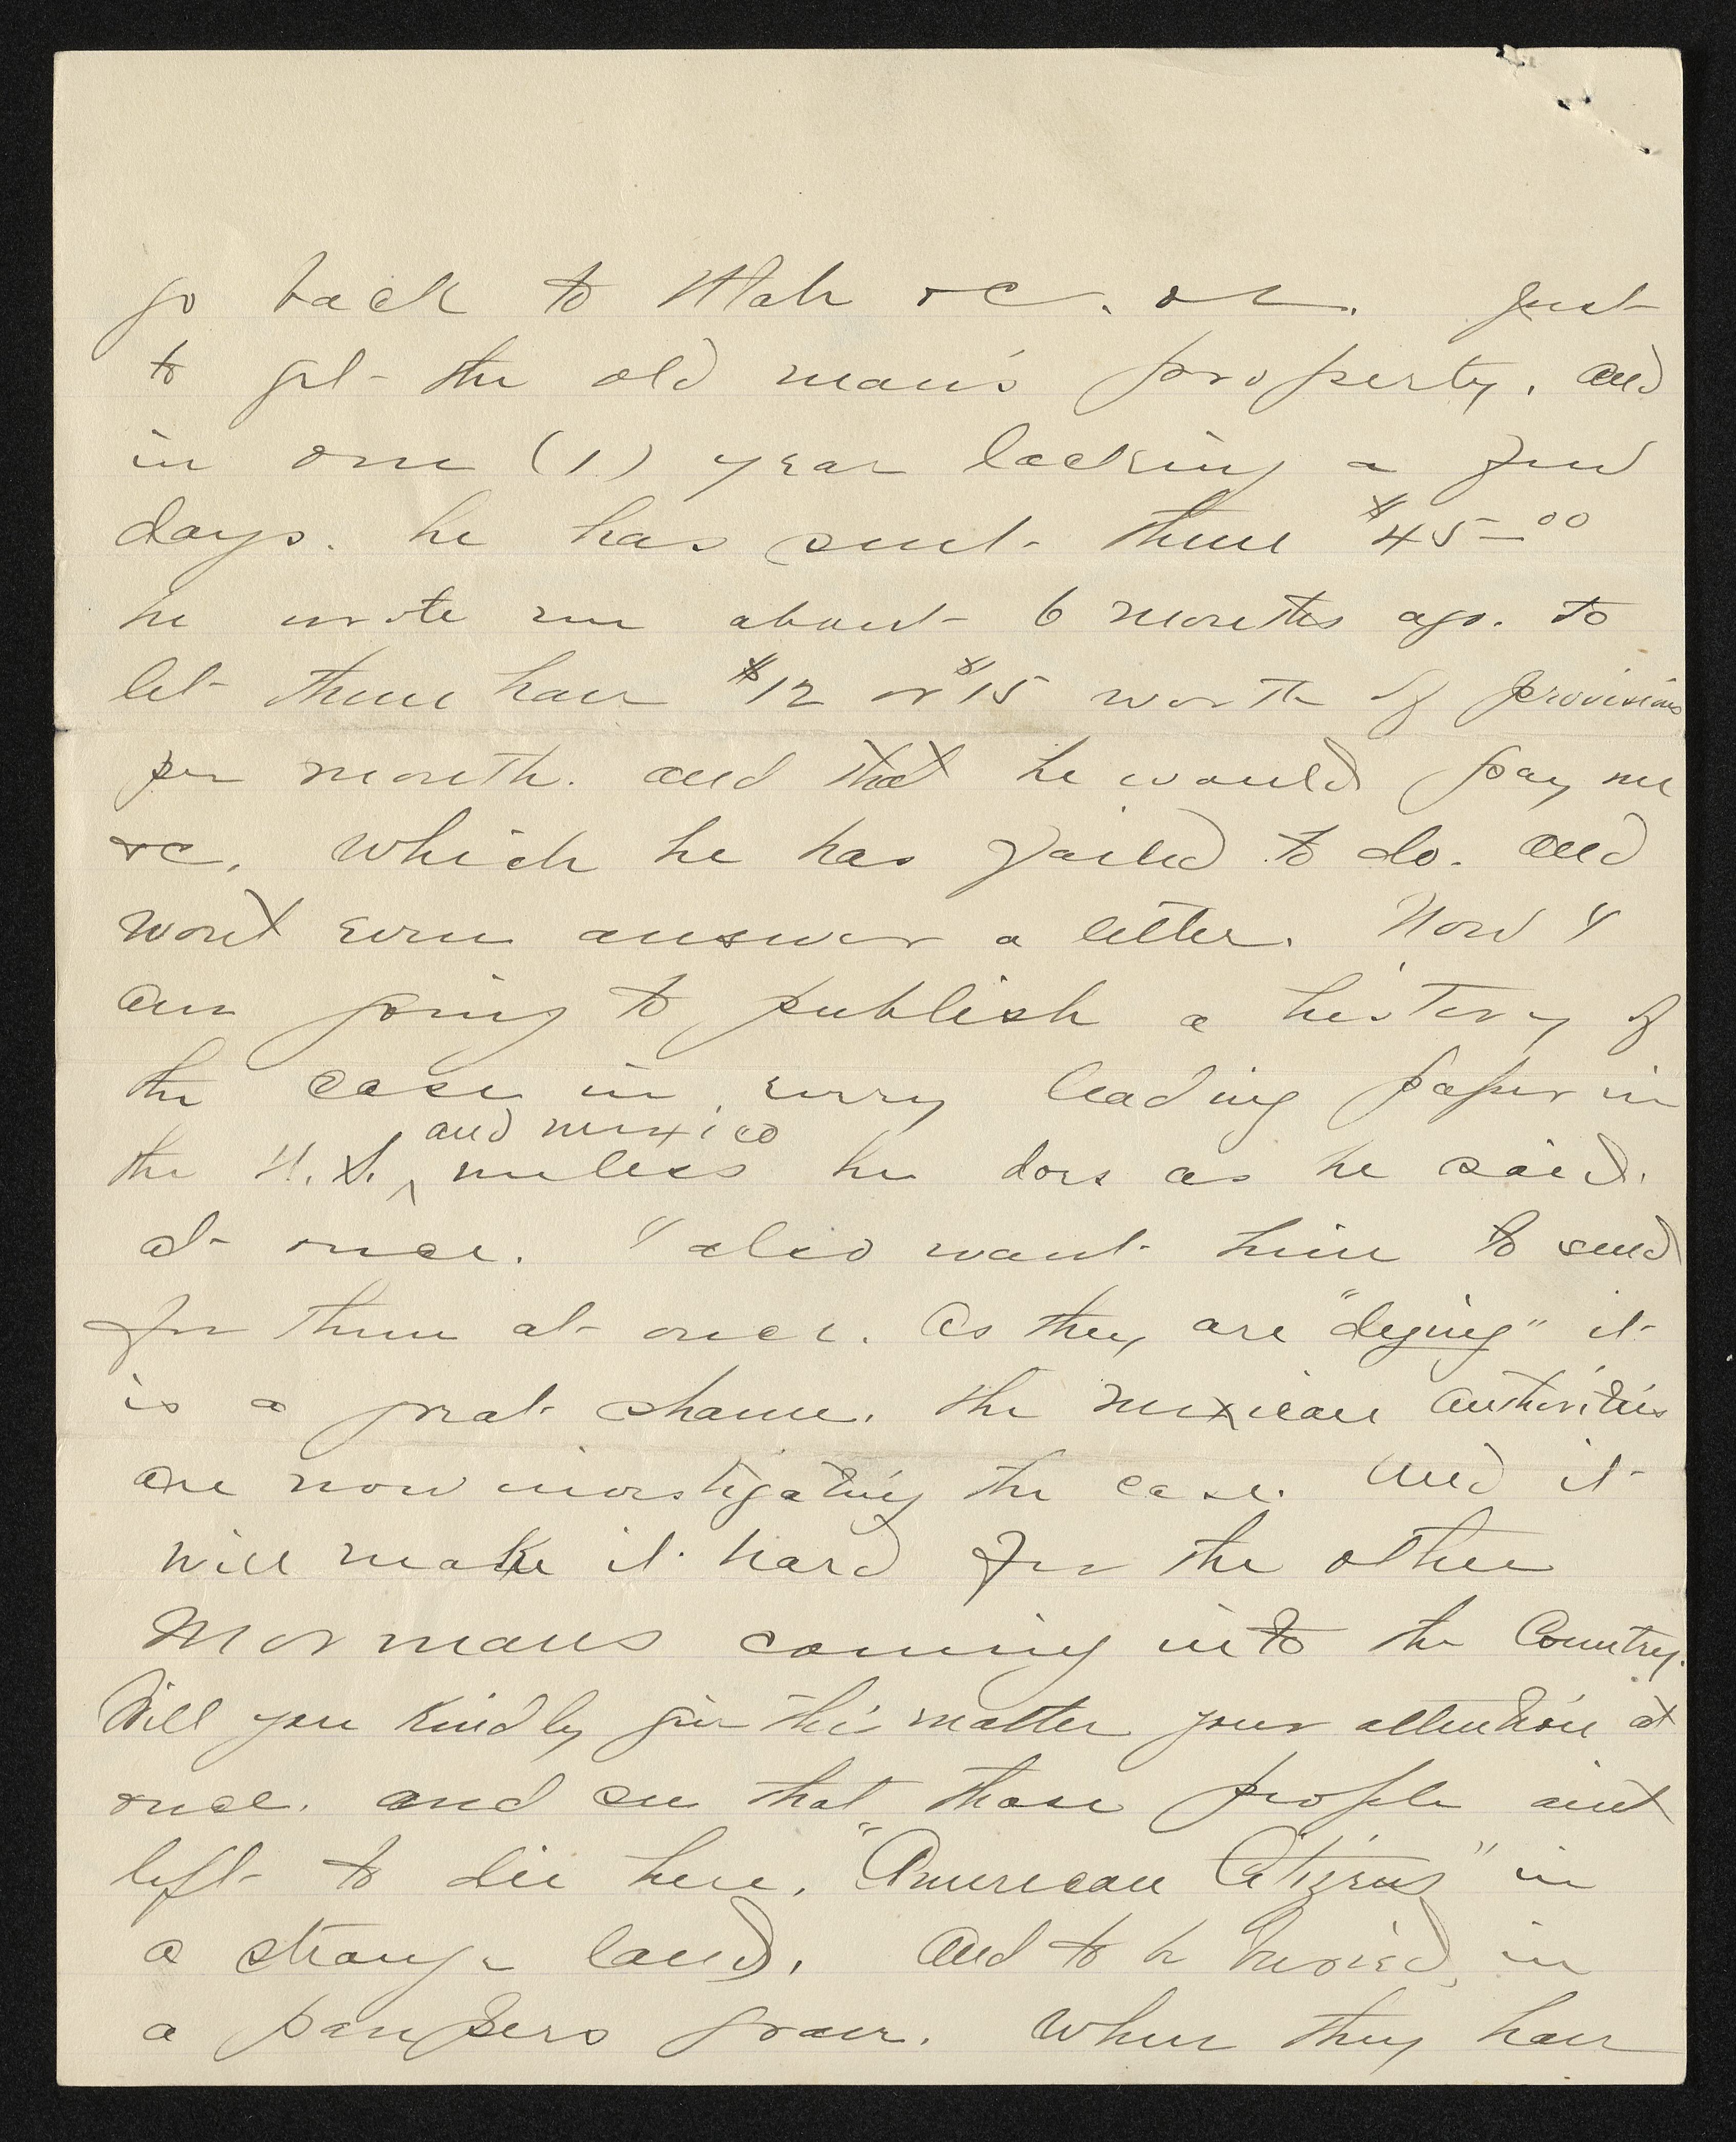 go back to Utah &c. &c. just
to get the old man's property. and
in one (1) year lacking a few
days. he has sent them $45.00
he wrote me about 6 months ago. to
let them have $12 or $15 worth of provisions
per month. and that he would pay me
&c. which he has failed to do. and
wont even answer a letter. Now I
am going to publish a history of
the case in every leading paper in
and mexico
the U.S. unless he does as he said.
at once. I also want him to send
for them at once. as they are "dying" it
is a great shame. the mexican authorities
are now investigating the case. and it
will make it hard for the other
Mormans coming into the Country.
Will you kindly give this matter your attention at
once. and see that those people aint
left to die here. "American Citizens" in
a strange land. and to be buried, in
a paupers grave. when they have